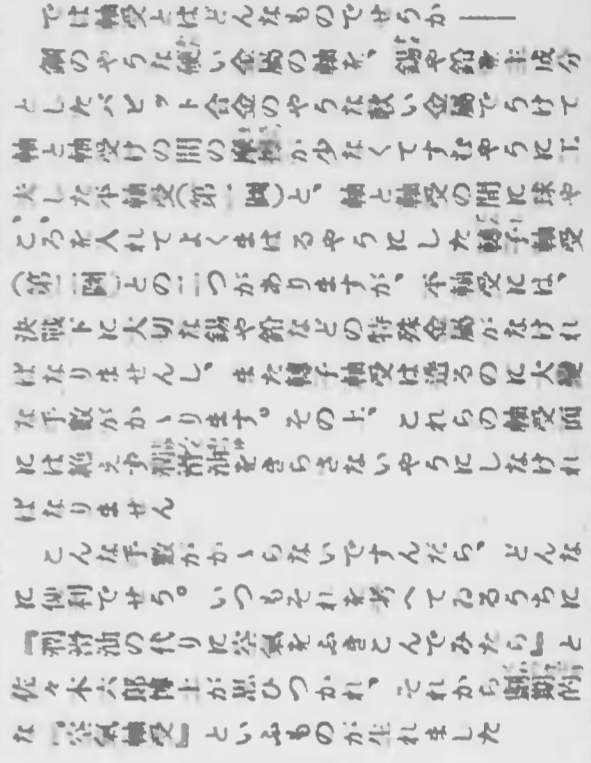 では軸受とはどんなものでせうか――
鋼のやうな硬い金属の軸を、錫や鉛を主成分
としたバビット合金のやうな軟い金属でうけて
軸と軸受けの間の摩擦が少なくてすむやうに工
夫した平軸受(第一図)と、軸と軸受の間に球や
ころを入れてよくまはるやうにした転子軸受
(第二図)との二つがありますが、平軸受には、
決戦下に大切な錫や鉛などの特殊金属がなけれ
ばなりませんし、また転子軸受は造るのに大変
な手数がかゝります。その上、これらの軸受面
には絶えず潤滑油をきらさないやうにしなけれ
ばなりません
こんな手数がかゝらないですんだら、どんな
に便利でせう。いつもそれを考へてゐるうちに
『潤滑油の代りに空気をふきこんでみたら』と
佐々木六郎博士が思ひつかれ、それから画期的
な『空気軸受』といふものが生れました